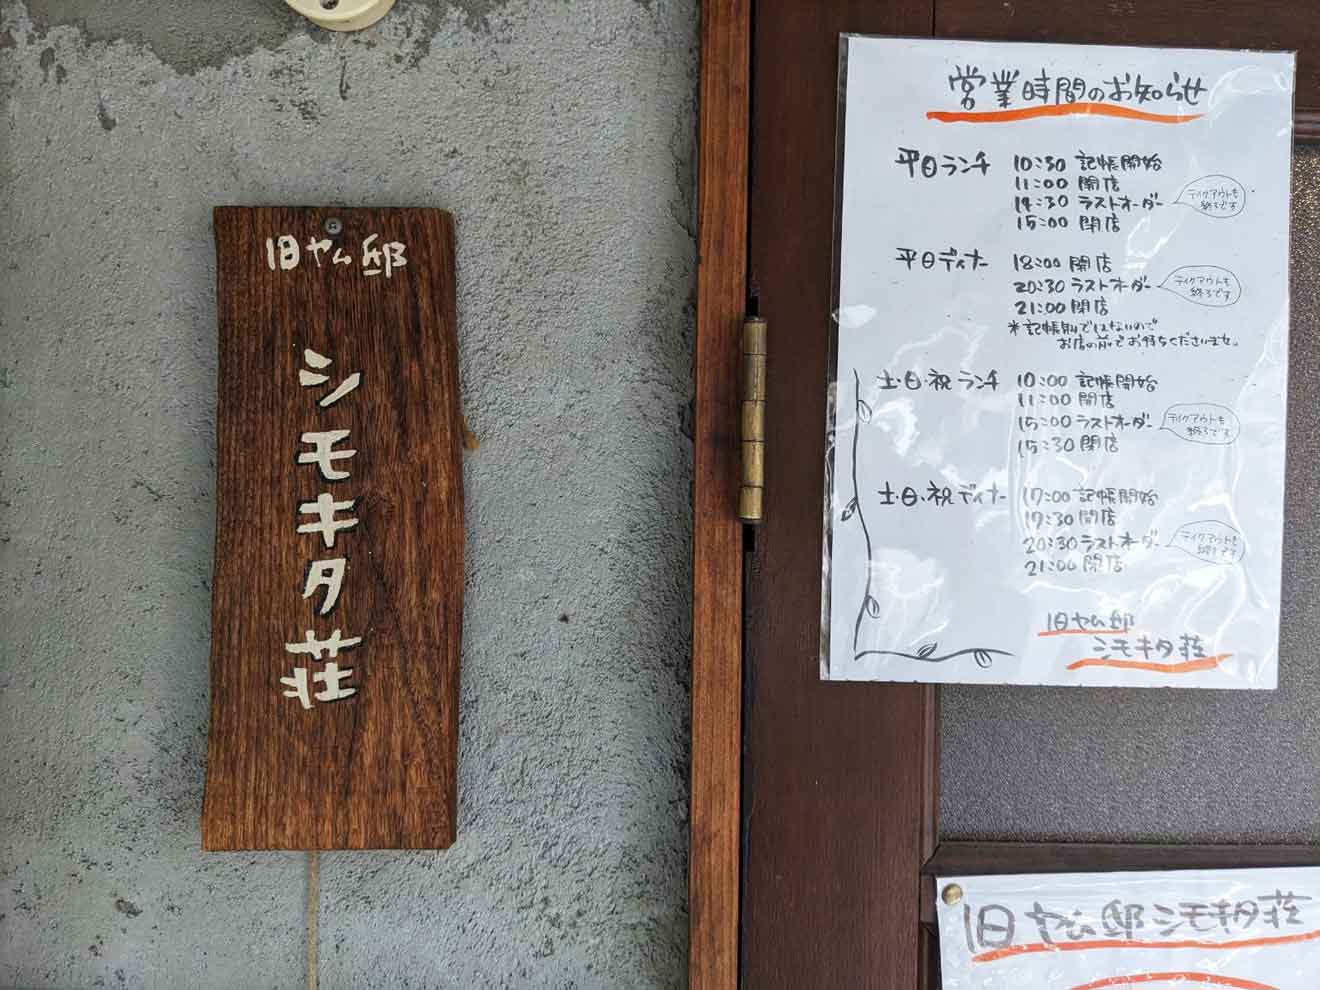 旧ヤム邸
シモキタ荘
営業時間のお知らせ
平日ランチ 10:30 記帳開始
11:00 開店
14:30 ラストオーダー テイクアウトも終了です
15:00 閉店
平日ディナー 18:00 開店
20:30 ラストオーダー テイクアウトも終了です
21:00 閉店
※記帳制ではないので
お店の前でお待ちくださいませ。
土・日・祝ランチ 10:00 記帳開始
11:00 開店
15:00 ラストオーダー テイクアウトも終了です
15:30 閉店
土・日・祝ディナー 17:00 記帳開始
17:30 開店
20:30 ラストオーダー テイクアウトも終了です
21:00 閉店
旧ヤム邸
シモキタ荘
旧ヤム邸シモキタ荘